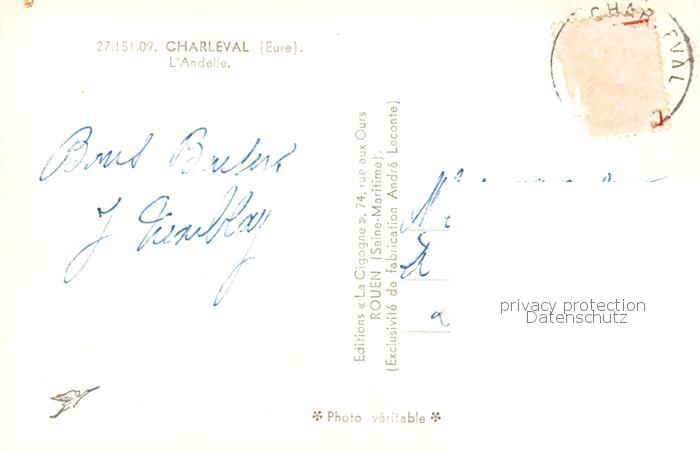 27.151.09. CHARLEVAL (Eure).
L'Andelle.
CHAR EVAL
Bons Baisers
J
Editions « La Cigogne », 74, rue aux Ours
ROUEN (Seine-Maritime).
(Exclusivité de fabrication André Leconte)
privacy protection
Datenschutz
✻ Photo véritable ✻